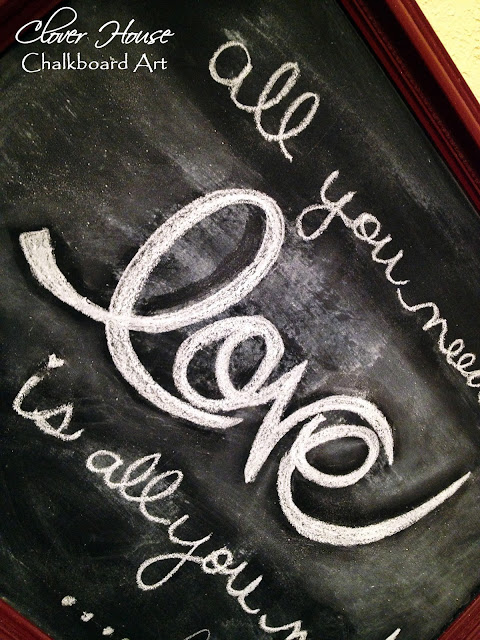 Clover House
Chalkboard Art
all you need
love
is all you
....